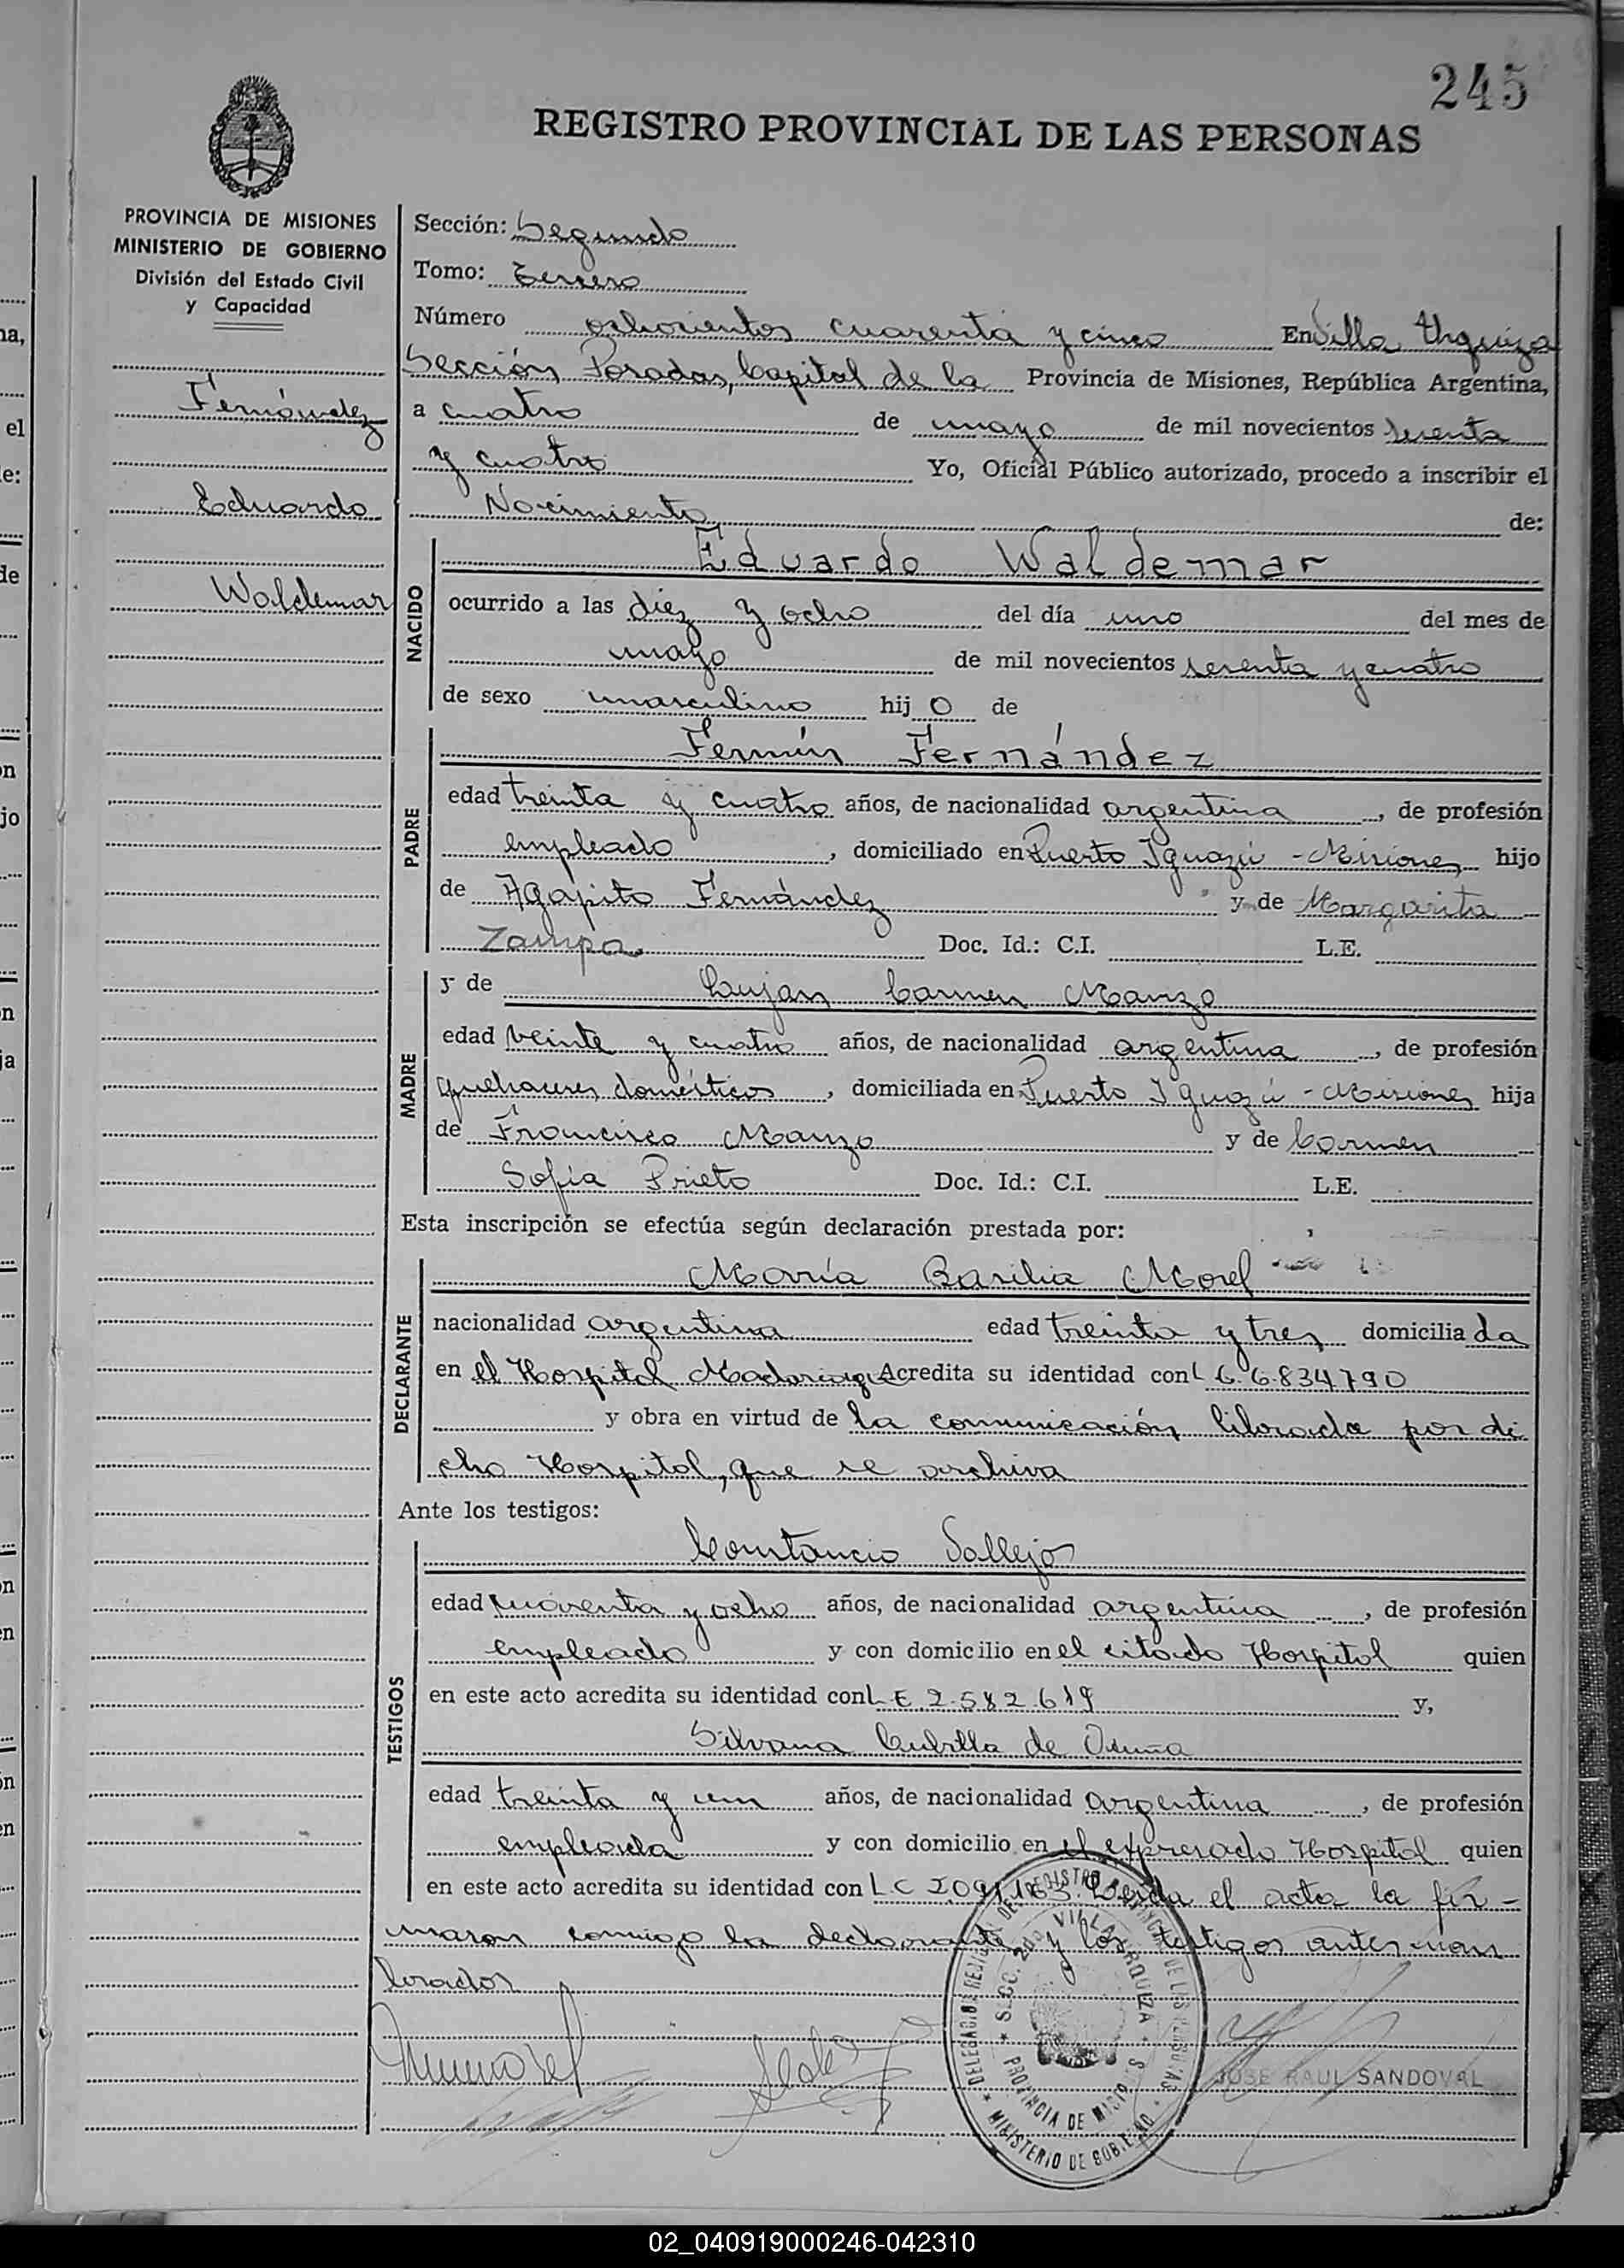 245
REGISTRO PROVINCIAL DE LAS PERSONAS
PROVINCIA DE MISIONES
MINISTERIO DE GOBIERNO
División del Estado Civil
y Capacidad
Fernández
Eduardo
Waldemar
Sección: Segunda
Tomo: Tercero
Número ochocientos cuarenta y cinco En Villa Urquiza
Sección Posadas, Capital de la Provincia de Misiones, República Argentina,
a cuatro de mayo de mil novecientos
y cuatro Yo, Oficial Público autorizado, procedo a inscribir el
Nacimiento de:
NACIDO
Eduardo Waldemar
ocurrido a las diez y ocho del día uno del mes de
mayo de mil novecientos y cuatro
de sexo masculino hijo de
PADRE
Fermín Fernández
edad treinta y cuatro años, de nacionalidad argentina, de profesión
empleado, domiciliado en Puerto Iguazú - Misiones, hijo
de Agapito Fernández y de Margarita
Zampa Doc. Id.: C.I. L.E.
MADRE
y de Lujan Carmen Manzo
edad veinte y cuatro años, de nacionalidad argentina, de profesión
quehaceres domésticos, domiciliada en Puerto Iguazú - Misiones hija
de Francisco Manzo y de Carmen
Sofía Prieto Doc. Id.: C.I. L.E.
Esta inscripción se efectúa según declaración prestada por:
DECLARANTE
María Basilia Morel
nacionalidad argentina edad treinta y tres domiciliada
en el Hospital Madariaga Acredita su identidad con L C. 6.834790
y obra en virtud de la comunicación librada por di
cho Hospital, que se archiva
Ante los testigos:
TESTIGOS
Constancio Vallejos
edad cuarenta y ocho años, de nacionalidad argentina, de profesión
empleado y con domicilio en el citado Hospital quien
en este acto acredita su identidad con L E 2.582.619 y,
Silvana Cubilla de Osuna
edad treinta y un años, de nacionalidad argentina, de profesión
empleada y con domicilio en el expresado Hospital quien
en este acto acredita su identidad con L C Leída el acta la fir-
maron conmigo la declarante y los testigos antes nom
brados
SECC. 2da. VILLA URQUIZA
PROVINCIA DE MISIONES
MINISTERIO DE GOBIERNO
JOSE RAUL SANDOVAL
02_040919000246-042310